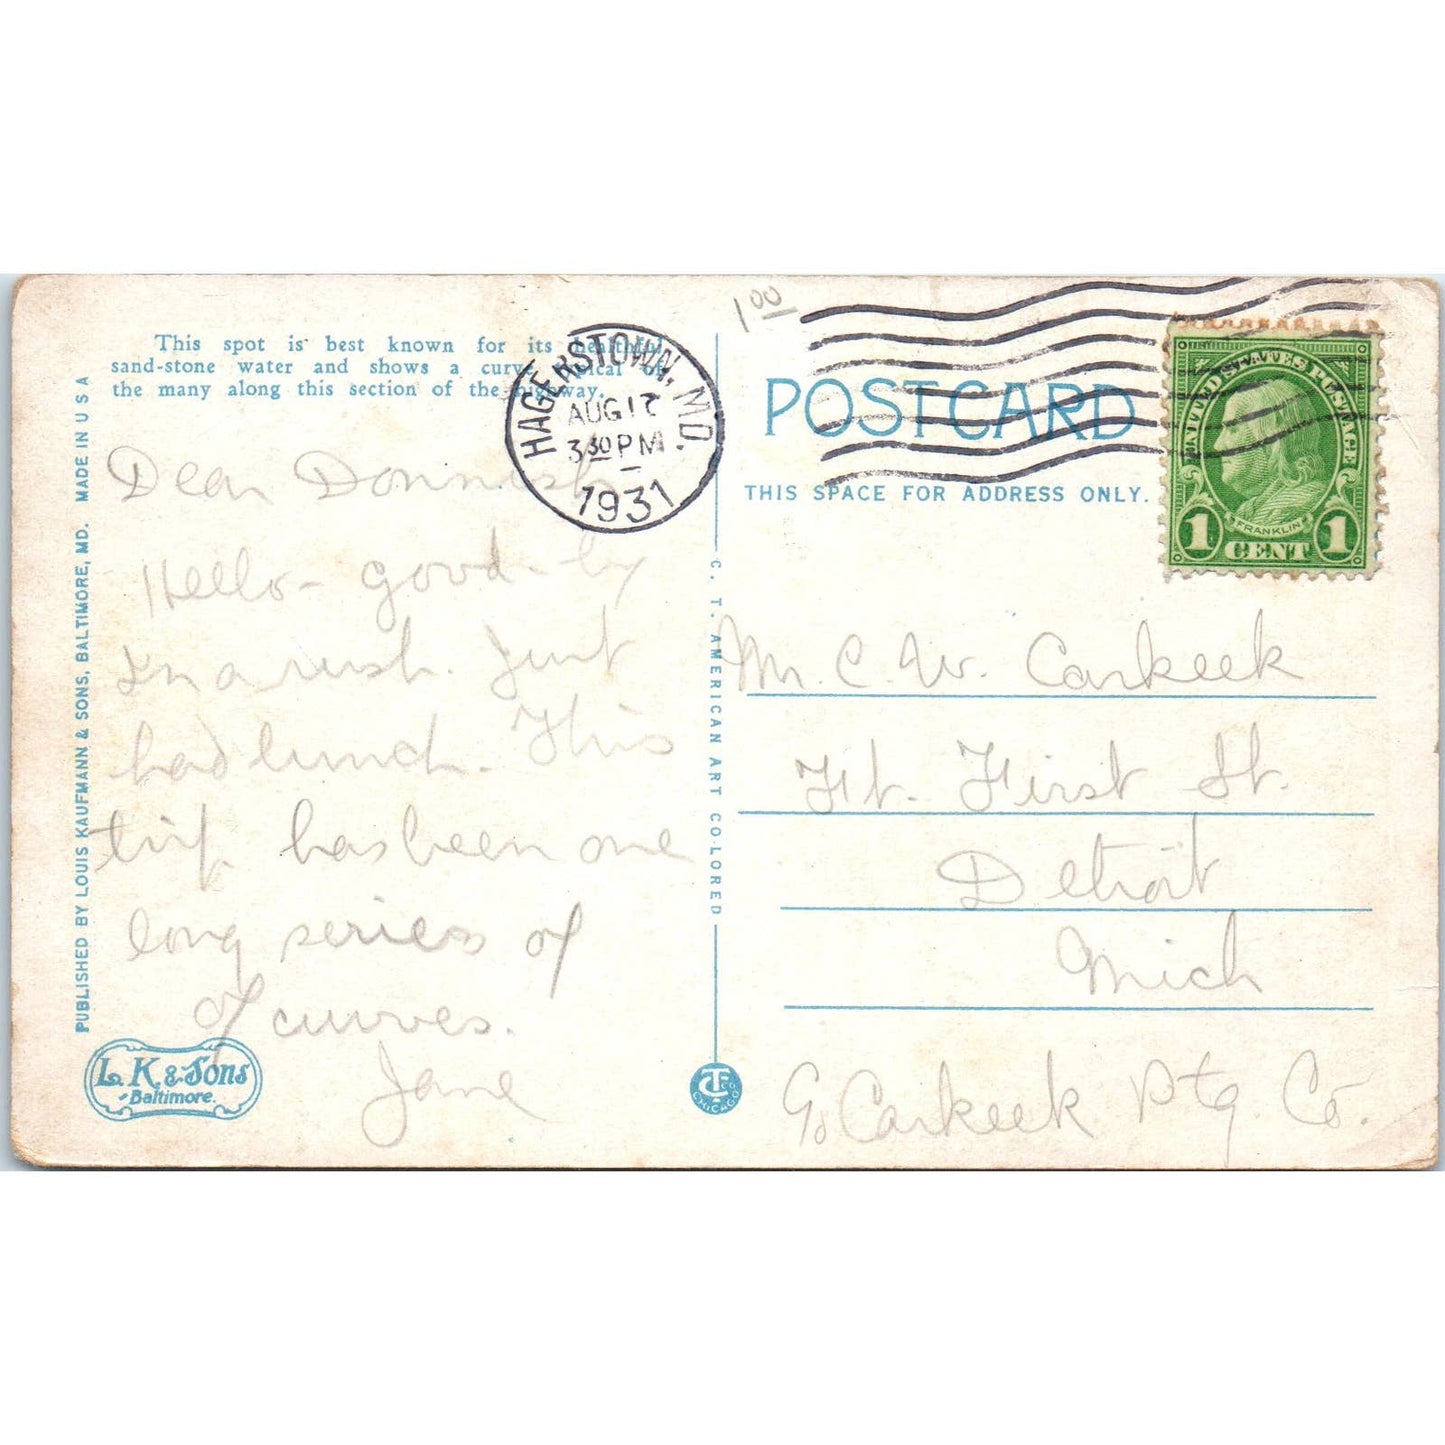 This spot is best known for its healthful
sand-stone water and shows a curve typical of
the many along this section of the highway.
HAGERSTOWN, MD.
AUG 17
3 30 PM
1931
1 00
POST CARD
THIS SPACE FOR ADDRESS ONLY.
UNITED STATES POSTAGE
FRANKLIN
1 CENT 1
Dear
Hello - good-by
In a rush. Just
had lunch. This
trip has been one
long series of
of curves.
Jane
Mr. C. W. Carkeek
Ft. First St.
Detroit
Mich
℅ Carkeek Ptg. Co.
PUBLISHED BY LOUIS KAUFMANN & SONS, BALTIMORE, MD. MADE IN U S A
C. T. AMERICAN ART COLORED
L. K. & Sons
Baltimore.
CT CO
CHICAGO